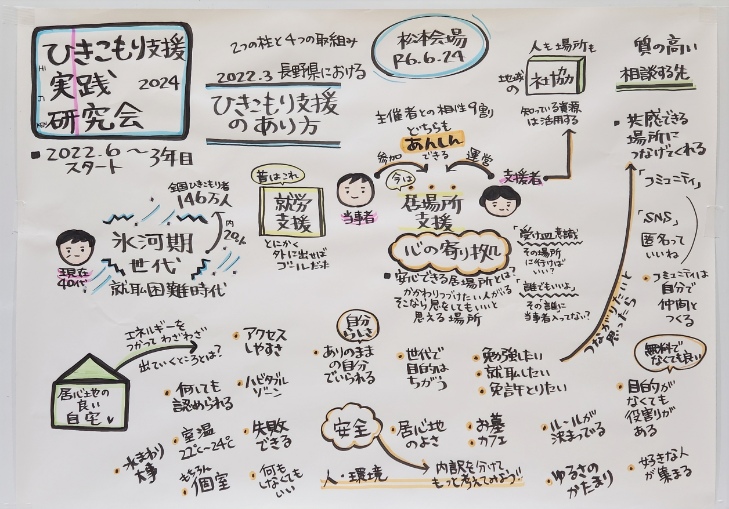 ひきこもり支援
実践 2024
研究会
2022.6～3年目
スタート
2つの柱と4つの取組み
2022.3 長野県における
ひきこもり支援
のあり方
松本会場
R6.6.24
人も場所も
地域の
社協
知っている資源
は活用する
質の高い
相談する先
共感できる
場所に
つなげてくれる
「コミュニティ」
「SNS」
匿名って
いいね
コミュニティは
自分で
仲間と
つくる
主催者との相性9割
どちらも
あんしん
できる
参加
運営
当事者
支援者
昔はこれ
就労
支援
とにかく
外に出せば
ゴールだった
今は
居場所
支援
心の寄り拠
安心できる居場所とは?
かかわりつづけたい人がいる
そこなら息をしてもいいと
思える場所
「受け皿意識」
その場所
に行けば
いい?
「誰でもいいよ」
その「誰」に
当事者入ってない?
つながりたいと
思ったら
全国ひきこもり者
146万人
内
氷河期
世代
就職困難時代
現在
40代
エネルギーを
つかって わざわざ
出ていくところとは?
居心地の
良い
自宅
アクセス
しやすさ
何でも
認められる
ハビタブル
ゾーン
水まわり
大事
室温
22℃～24℃
もちろん
個室
失敗
できる
何も
しなくても
いい
自分
らしさ
ありのまま
の自分
でいられる
世代で
目的は
ちがう
勉強したい
就職したい
免許とりたい
安全
居心地
のよさ
お墓
カフェ
ルールが
決まっている
人・環境
内訳を分けて
もっと考えてみよう!!
ゆるさの
かたまり
無料で
なくても良い
目的が
なくても
役割りが
ある
好きな人
が集まる